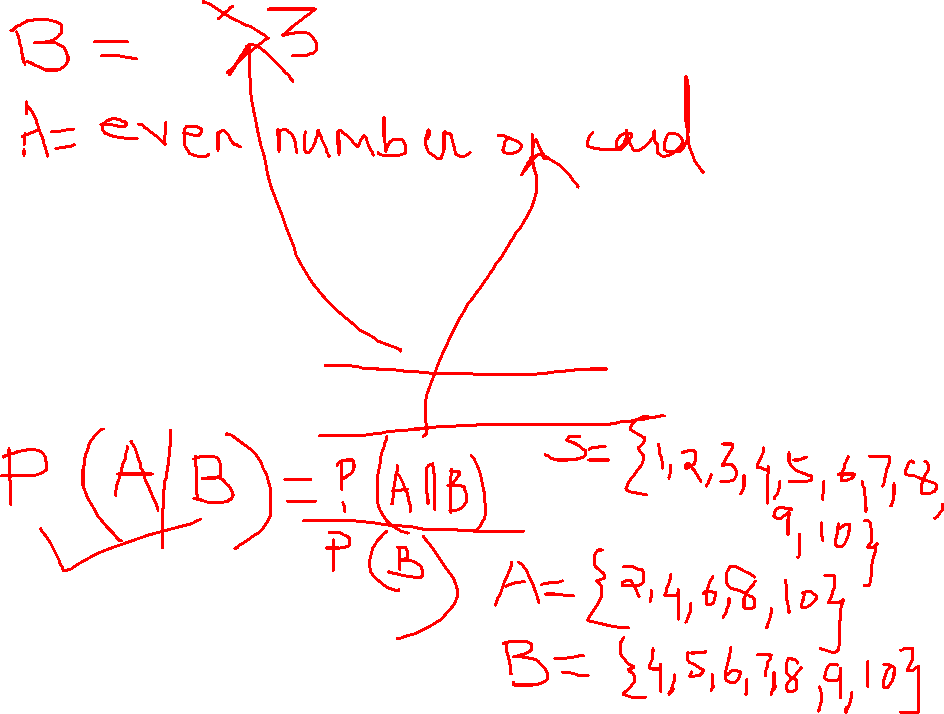 B = >3
A= even number on card
P(A/B) = P(A∩B)
P(B)
S= {1,2,3,4,5,6,7,8,
9,10}
A= {2,4,6,8,10}
B= {4,5,6,7,8,9,10}